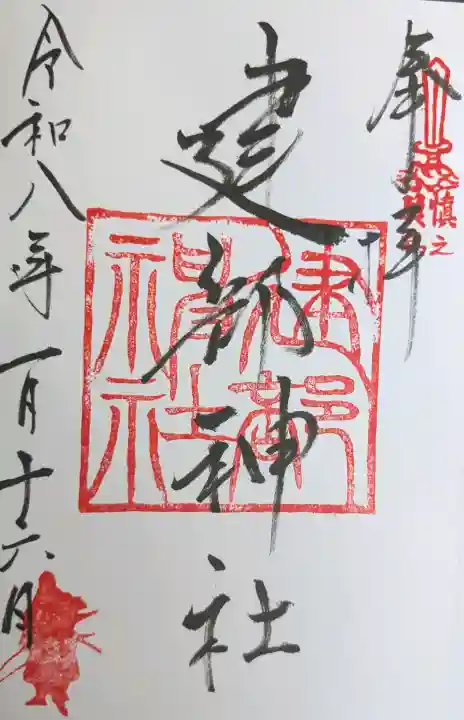 奉拝
慎之
建部神社
建部
神社
令和八年一月十六日